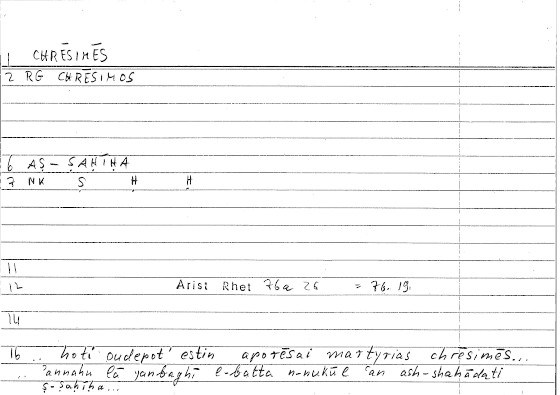 1 CHRĒSIMĒS
2 RG CHRĒSIMOS
6 AṢ-ṢAḤĪḤA
7 NK Ṣ Ḥ Ḥ
11
12 Arist Rhet 76a 26 = 76.19.
14
16 .. hoti oudepot' estin aporēsai martyrias chrēsimēs...
.. 'annahu lā yanbaghī l-batta n-nukūl 'an ash-shahādati
ṣ-ṣaḥīḥa...